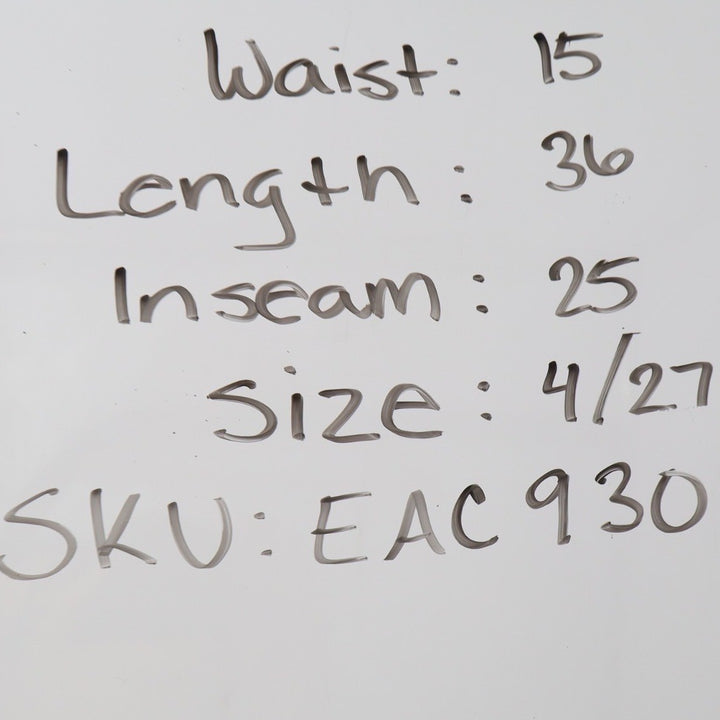 Waist: 15
Length: 36
Inseam: 25
Size: 4/27
SKU: EAC930